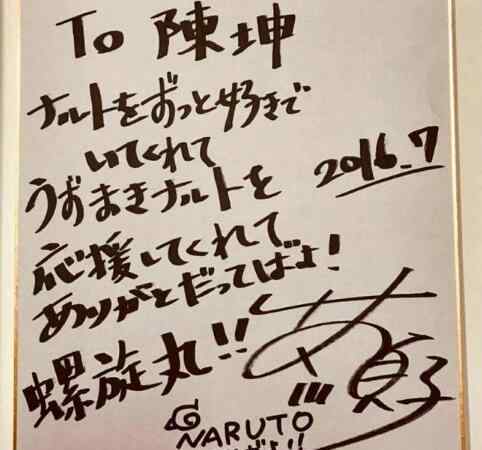 To 陳坤
ナルトをずっと好きで
いてくれて
2016.7
うずまきナルトを
応援してくれて
ありがとだってばよ!
螺旋丸!!
NARUTO